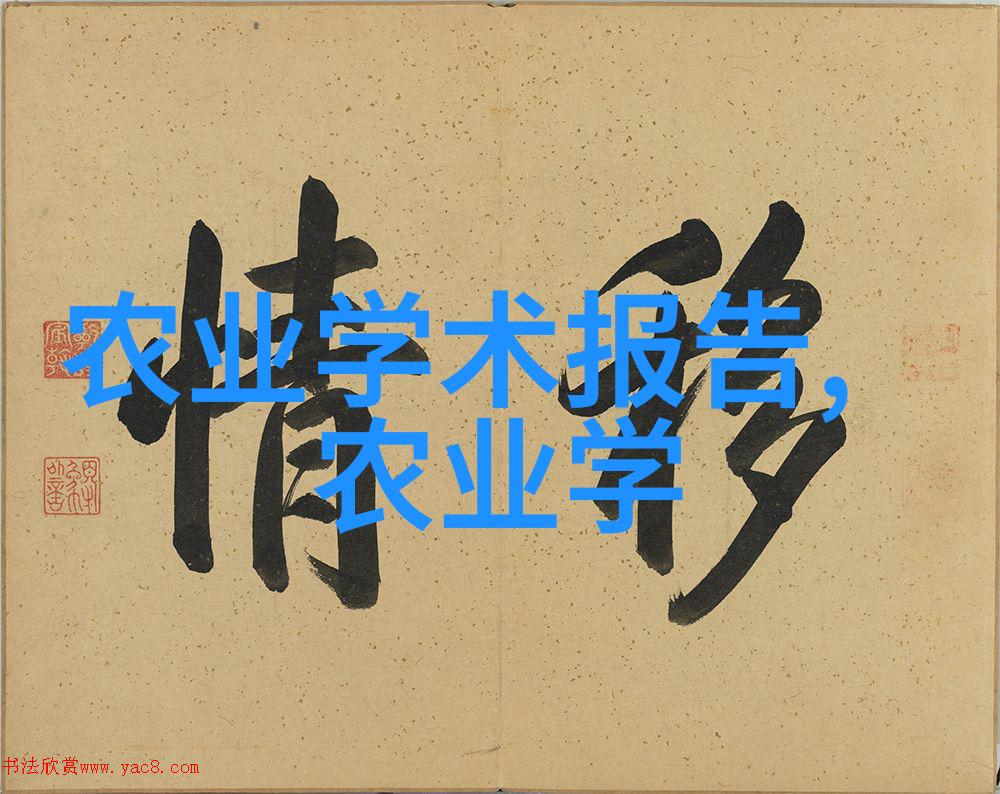 移情
农业学术报告,
农业学
书法欣赏www.yac8.com